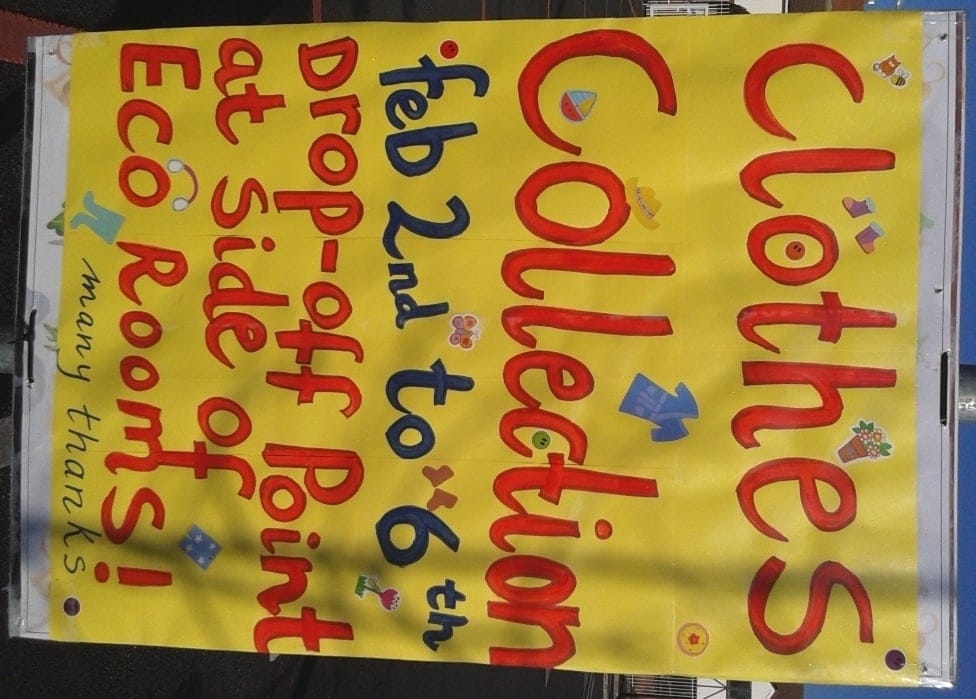 Clothes
Collection
feb 2nd to 6th
Drop-off Point
at side of
Eco Rooms!
many thanks